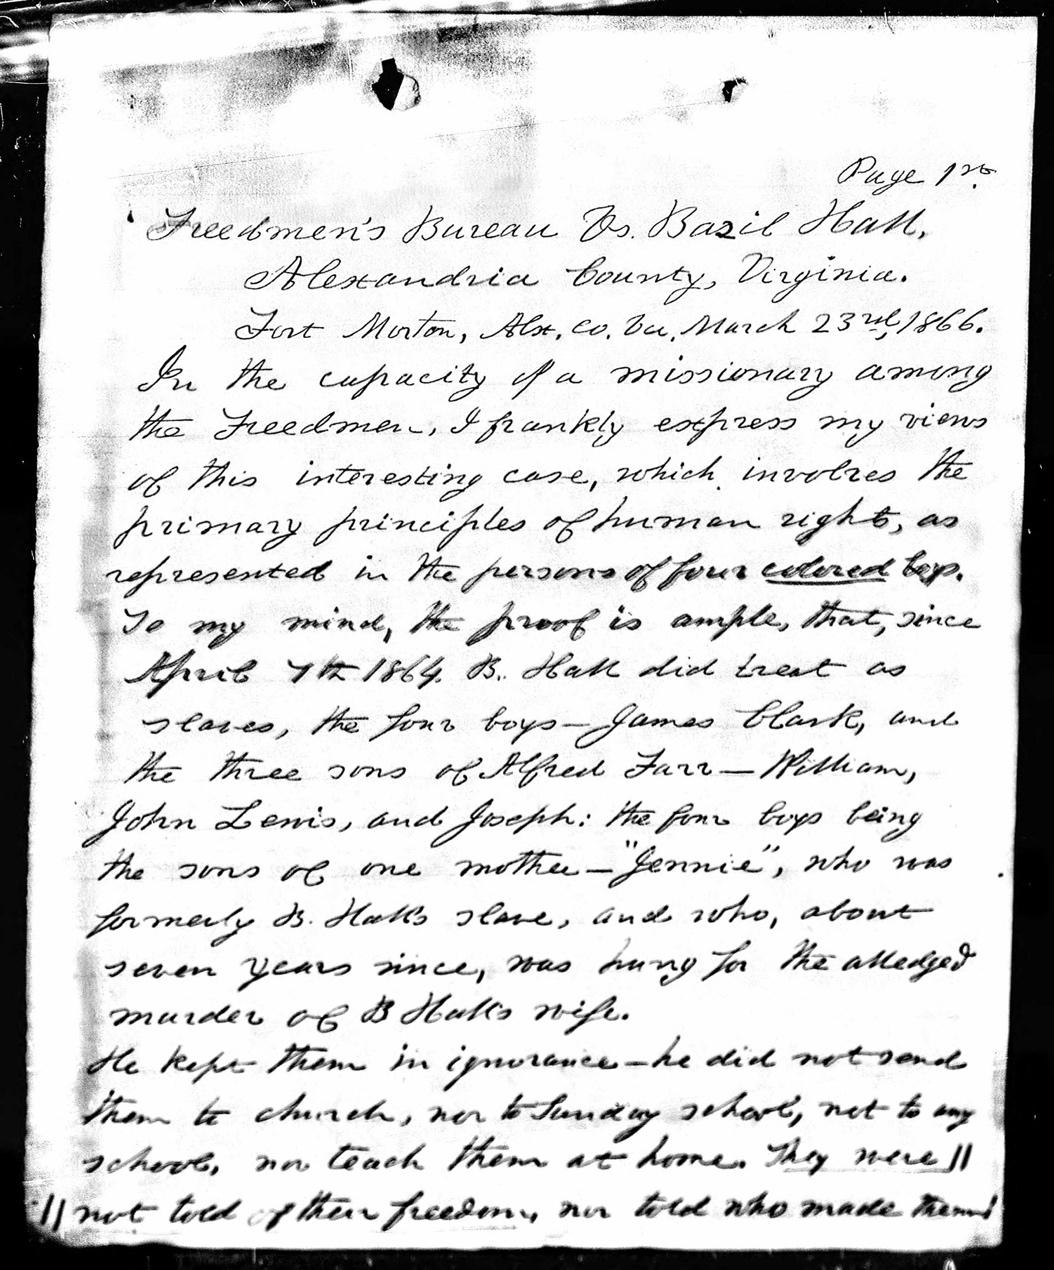 Page 1st.
Freedmen's Bureau Vs. Bazil Hall,
Alexandria County, Virginia.
Fort Morton, Alx. Co. Va. March 23rd, 1866.
In the capacity of a missionary among
the Freedmen, I frankly express my views
of this interesting case, which involves the
primary principles of human rights, as
represented in the persons of four colored boys.
To my mind, the proof is ample, that, since
April 7th 1864. B. Hall did treat as
slaves, the four boys — James Clark, and
the three sons of Alfred Farr — William,
John Lewis, and Joseph: the four boys being
the sons of one mother — "Jennie", who was
formerly B. Hall's slave, and who, about
seven years since, was hung for the alledged
murder of B Hall's wife.
He kept them in ignorance — he did not send
them to church, nor to Sunday school, not to any
school, nor teach them at home. They were ||
|| not told of their freedom, nor told who made them!